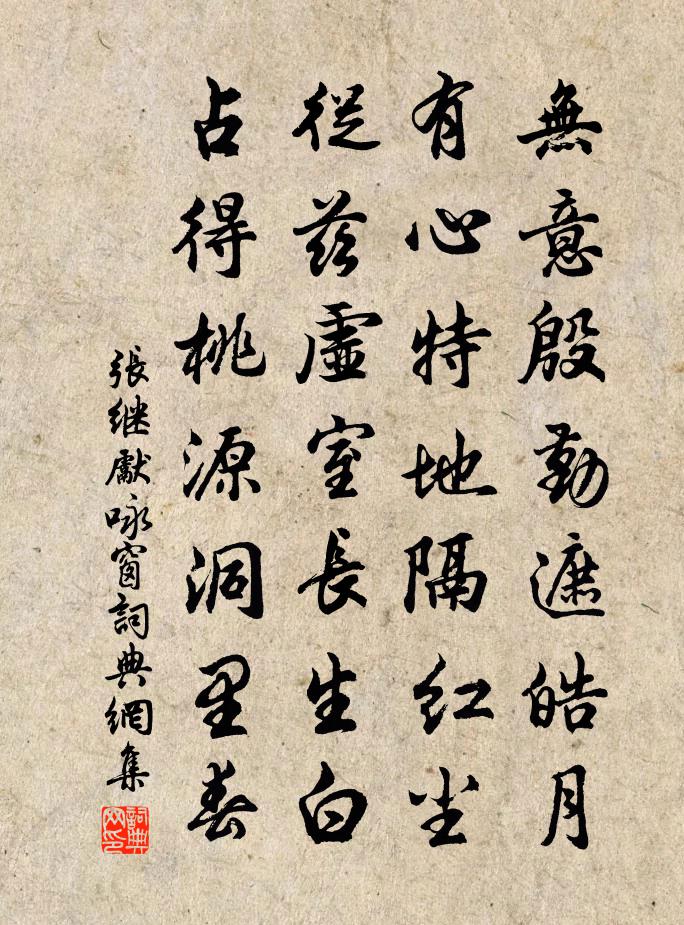 無意殷勤遮皓月
有心特地隔紅尘
從茲虛室長生白
占得桃源洞里春
張継獻咏窗詞典網集
詞典网印